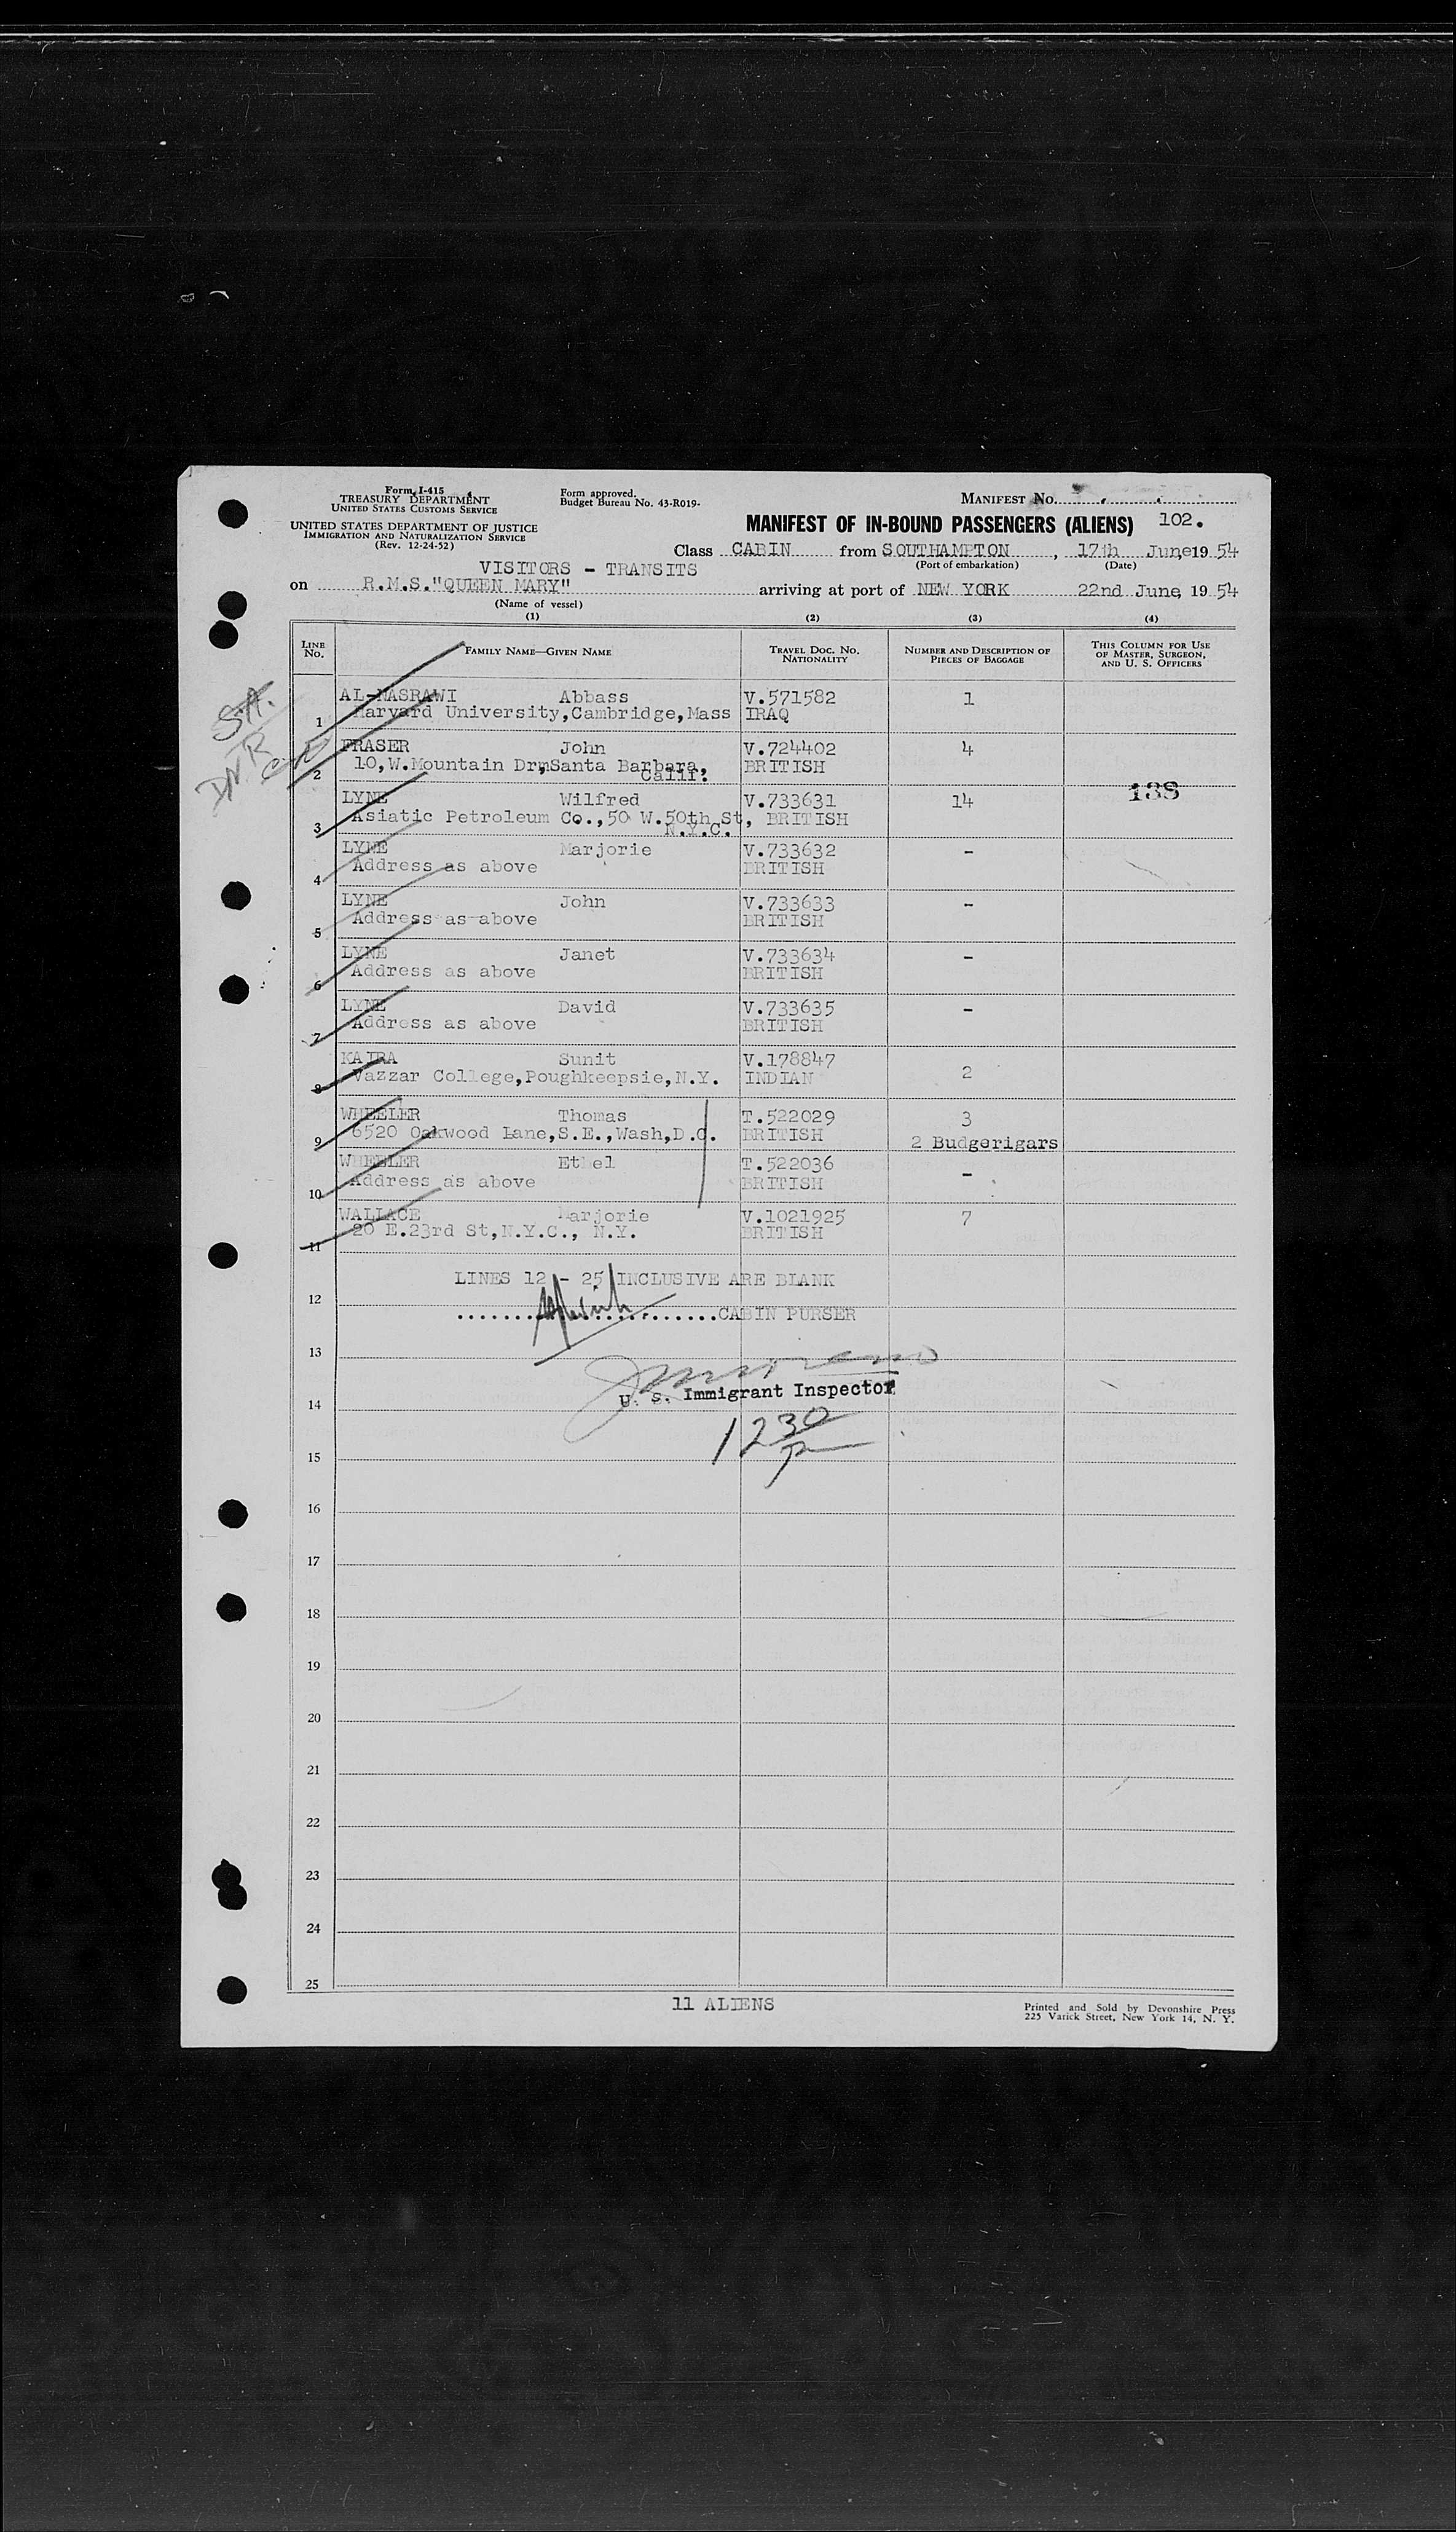 Form I-415
TREASURY DEPARTMENT
UNITED STATES CUSTOMS SERVICE
UNITED STATES DEPARTMENT OF JUSTICE
IMMIGRATION AND NATURALIZATION SERVICE
(Rev. 12-24-52)
Form approved.
Budget Bureau No. 43-R019-
MANIFEST No.
MANIFEST OF IN-BOUND PASSENGERS (ALIENS) 102.
Class CABIN from SOUTHAMPTON, 17th June, 1954
(Port of embarkation) (Date)
VISITORS - TRANSITS
on R.M.S."QUEEN MARY" arriving at port of NEW YORK 22nd June, 1954
(Name of vessel)
(1) (2) (3) (4)
LINE No. FAMILY NAME—GIVEN NAME TRAVEL DOC. NO. NATIONALITY NUMBER AND DESCRIPTION OF PIECES OF BAGGAGE THIS COLUMN FOR USE OF MASTER, SURGEON, AND U. S. OFFICERS
S.A.
1 AL-NASRAWI Abbass V.571582 1
Harvard University,Cambridge,Mass IRAQ
2 FRASER John V.724402 4
10,W.Mountain Dr,Santa Barbara, Calif. BRITISH
138
3 LYNE Wilfred V.733631 14
Asiatic Petroleum Co.,50 W.50th St, N.Y.C. BRITISH
4 LYNE Marjorie V.733632 -
Address as above BRITISH
5 LYNE John V.733633 -
Address as above BRITISH
6 LYNE Janet V.733634 -
Address as above BRITISH
7 LYNE David V.733635 -
Address as above BRITISH
8 KAIRA Sunit V.178847 2
Vazzar College,Poughkeepsie,N.Y. INDIAN
9 WHEELER Thomas T.522029 3
6520 Oakwood Lane,S.E.,Wash,D.C. BRITISH 2 Budgerigars
10 WHEELER Ethel T.522036 -
Address as above BRITISH
11 WALLACE Marjorie V.1021925 7
20 E.23rd St,N.Y.C., N.Y. BRITISH
LINES 12 - 25 INCLUSIVE ARE BLANK
12
CABIN PURSER
13
U. S. Immigrant Inspector
14
12 30 p
15
16
17
18
19
20
21
22
23
24
25
11 ALIENS
Printed and Sold by Devonshire Press
225 Varick Street, New York 14, N. Y.